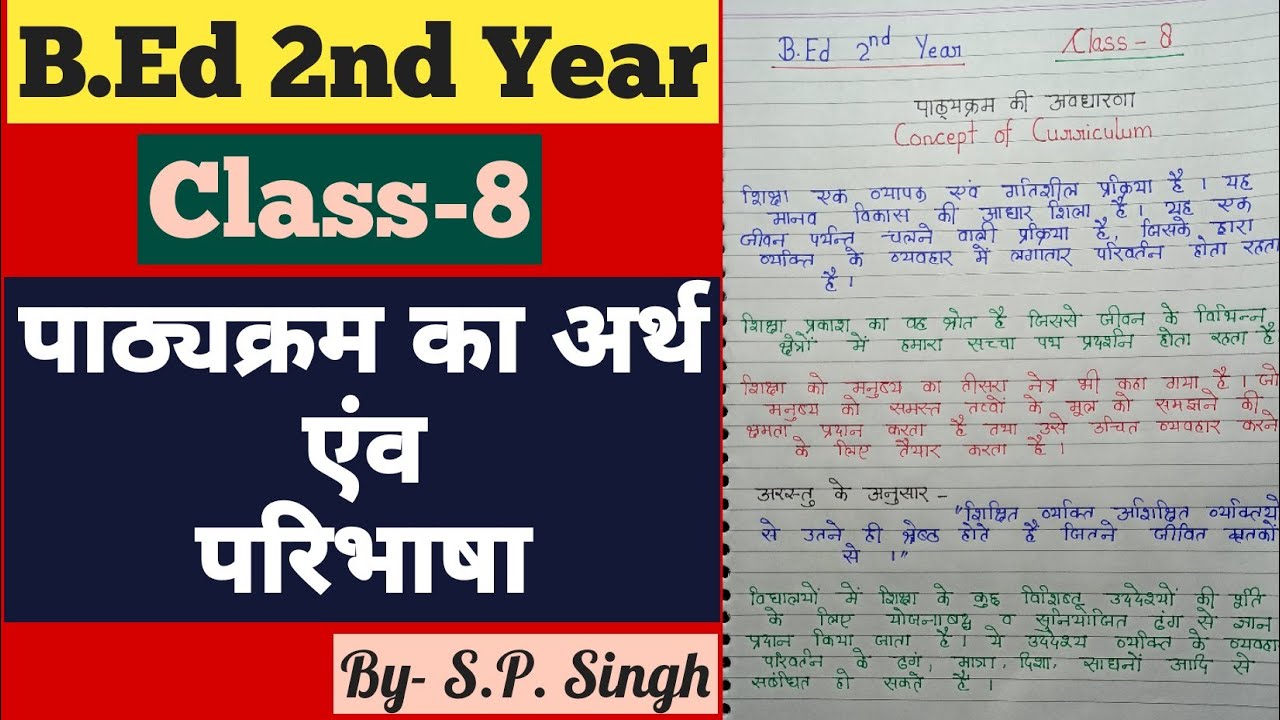 B.Ed 2nd Year
Class-8
पाठ्यक्रम का अर्थ
एंव
परिभाषा
By- S.P. Singh
B.Ed 2nd Year
Class - 8
पाठ्यक्रम की अवधारणा
Concept of Curriculum
शिक्षा एक व्यापक एवं गतिशील प्रक्रिया है । यह
मानव विकास की आधार शिला है । यह एक
जीवन पर्यन्त चलने वाली प्रक्रिया है, जिसके द्वारा
व्यक्ति के व्यवहार में लगातार परिवर्तन होता रहता
है ।
शिक्षा प्रकाश का वह श्रोत है जिससे जीवन के विभिन्न
क्षेत्रों में हमारा सच्चा पथ प्रदर्शन होता रहता है
शिक्षा को मनुष्य का तीसरा नेत्र भी कहा गया है । जो
मनुष्य को समस्त तत्वों के मूल को समझने की
क्षमता प्रदान करता है तथा उसे उचित व्यवहार करने
के लिए तैयार करता है ।
अरस्तु के अनुसार -
"शिक्षित व्यक्ति अशिक्षित व्यक्तियो
से उतने ही श्रेष्ठ होते है जितने जीवित मृतको
से ।"
विद्यालयों में शिक्षा के कुछ विशिष्ट उददेश्यों की पूर्ति
के लिए योजनाबद्ध व सुनियोजित ढंग से ज्ञान
प्रदान किया जाता है । ये उददेश्य व्यक्ति के व्यवहा
परिवर्तन के ढगं, मात्रा, दिशा, साधनों आदि से
सबंधित हो सकते है ।